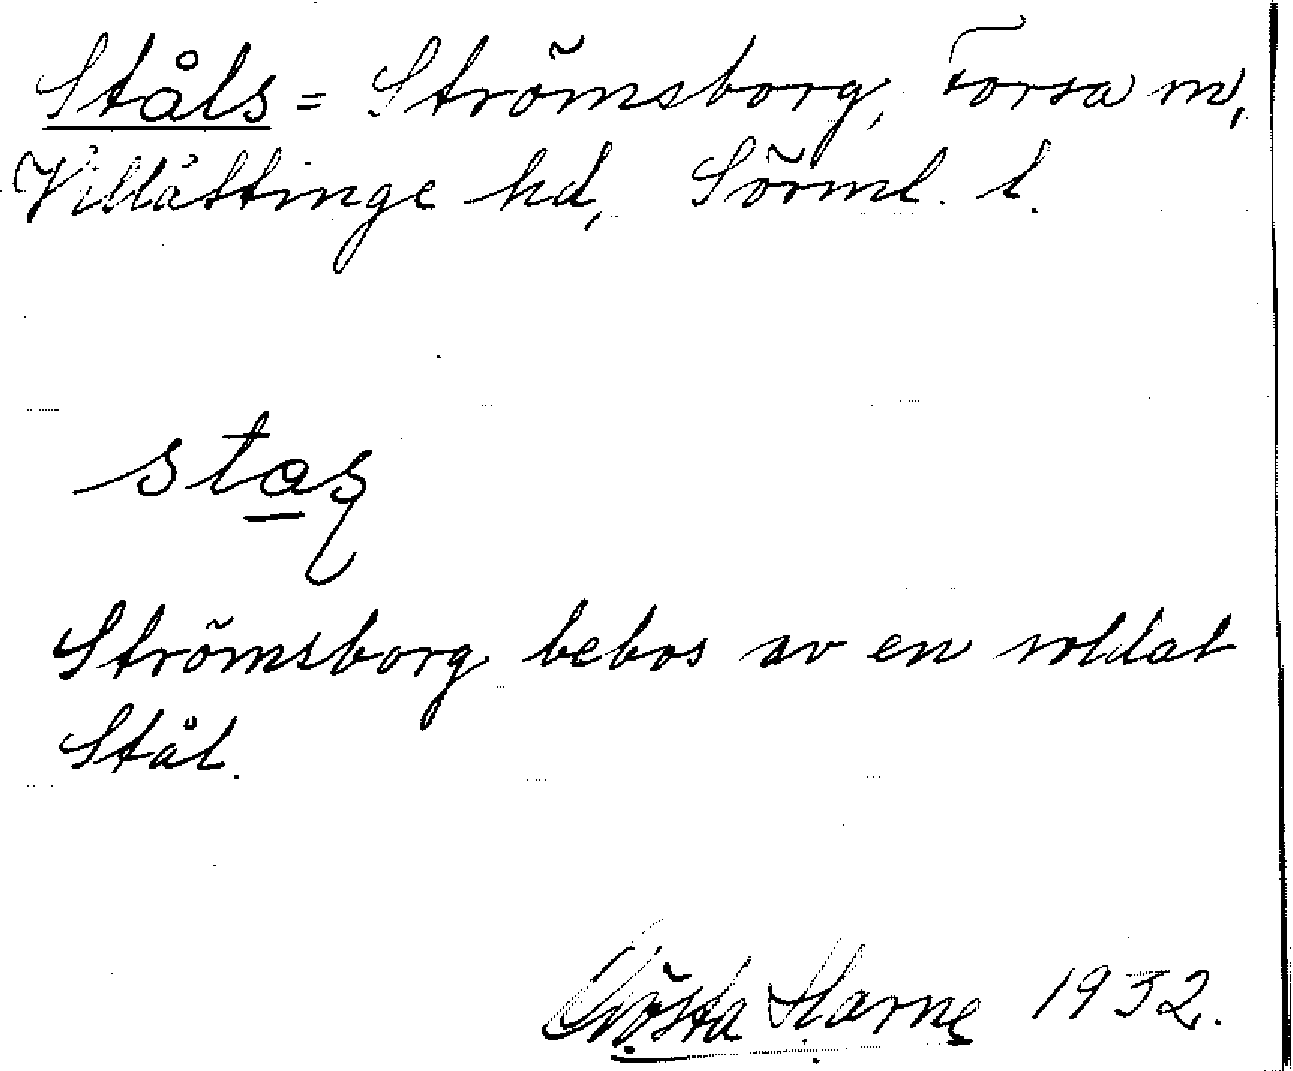 Ståls = Strömsborg, Forsa sn,
Villåttinge hd, Sörml. l.
stas
Strömsborg bebos av en soldat
Stål.
Gösta 1932.